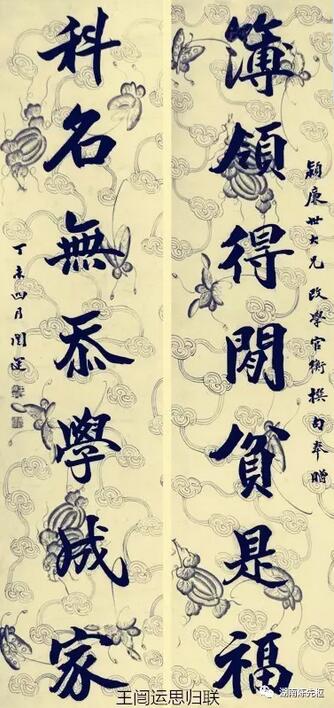 穎康世大兄改學官銜撰句奉贈
簿領得閒貧是福
科名無忝學成家
丁未四月闓運
王闿运思归联
湖南陈先枢